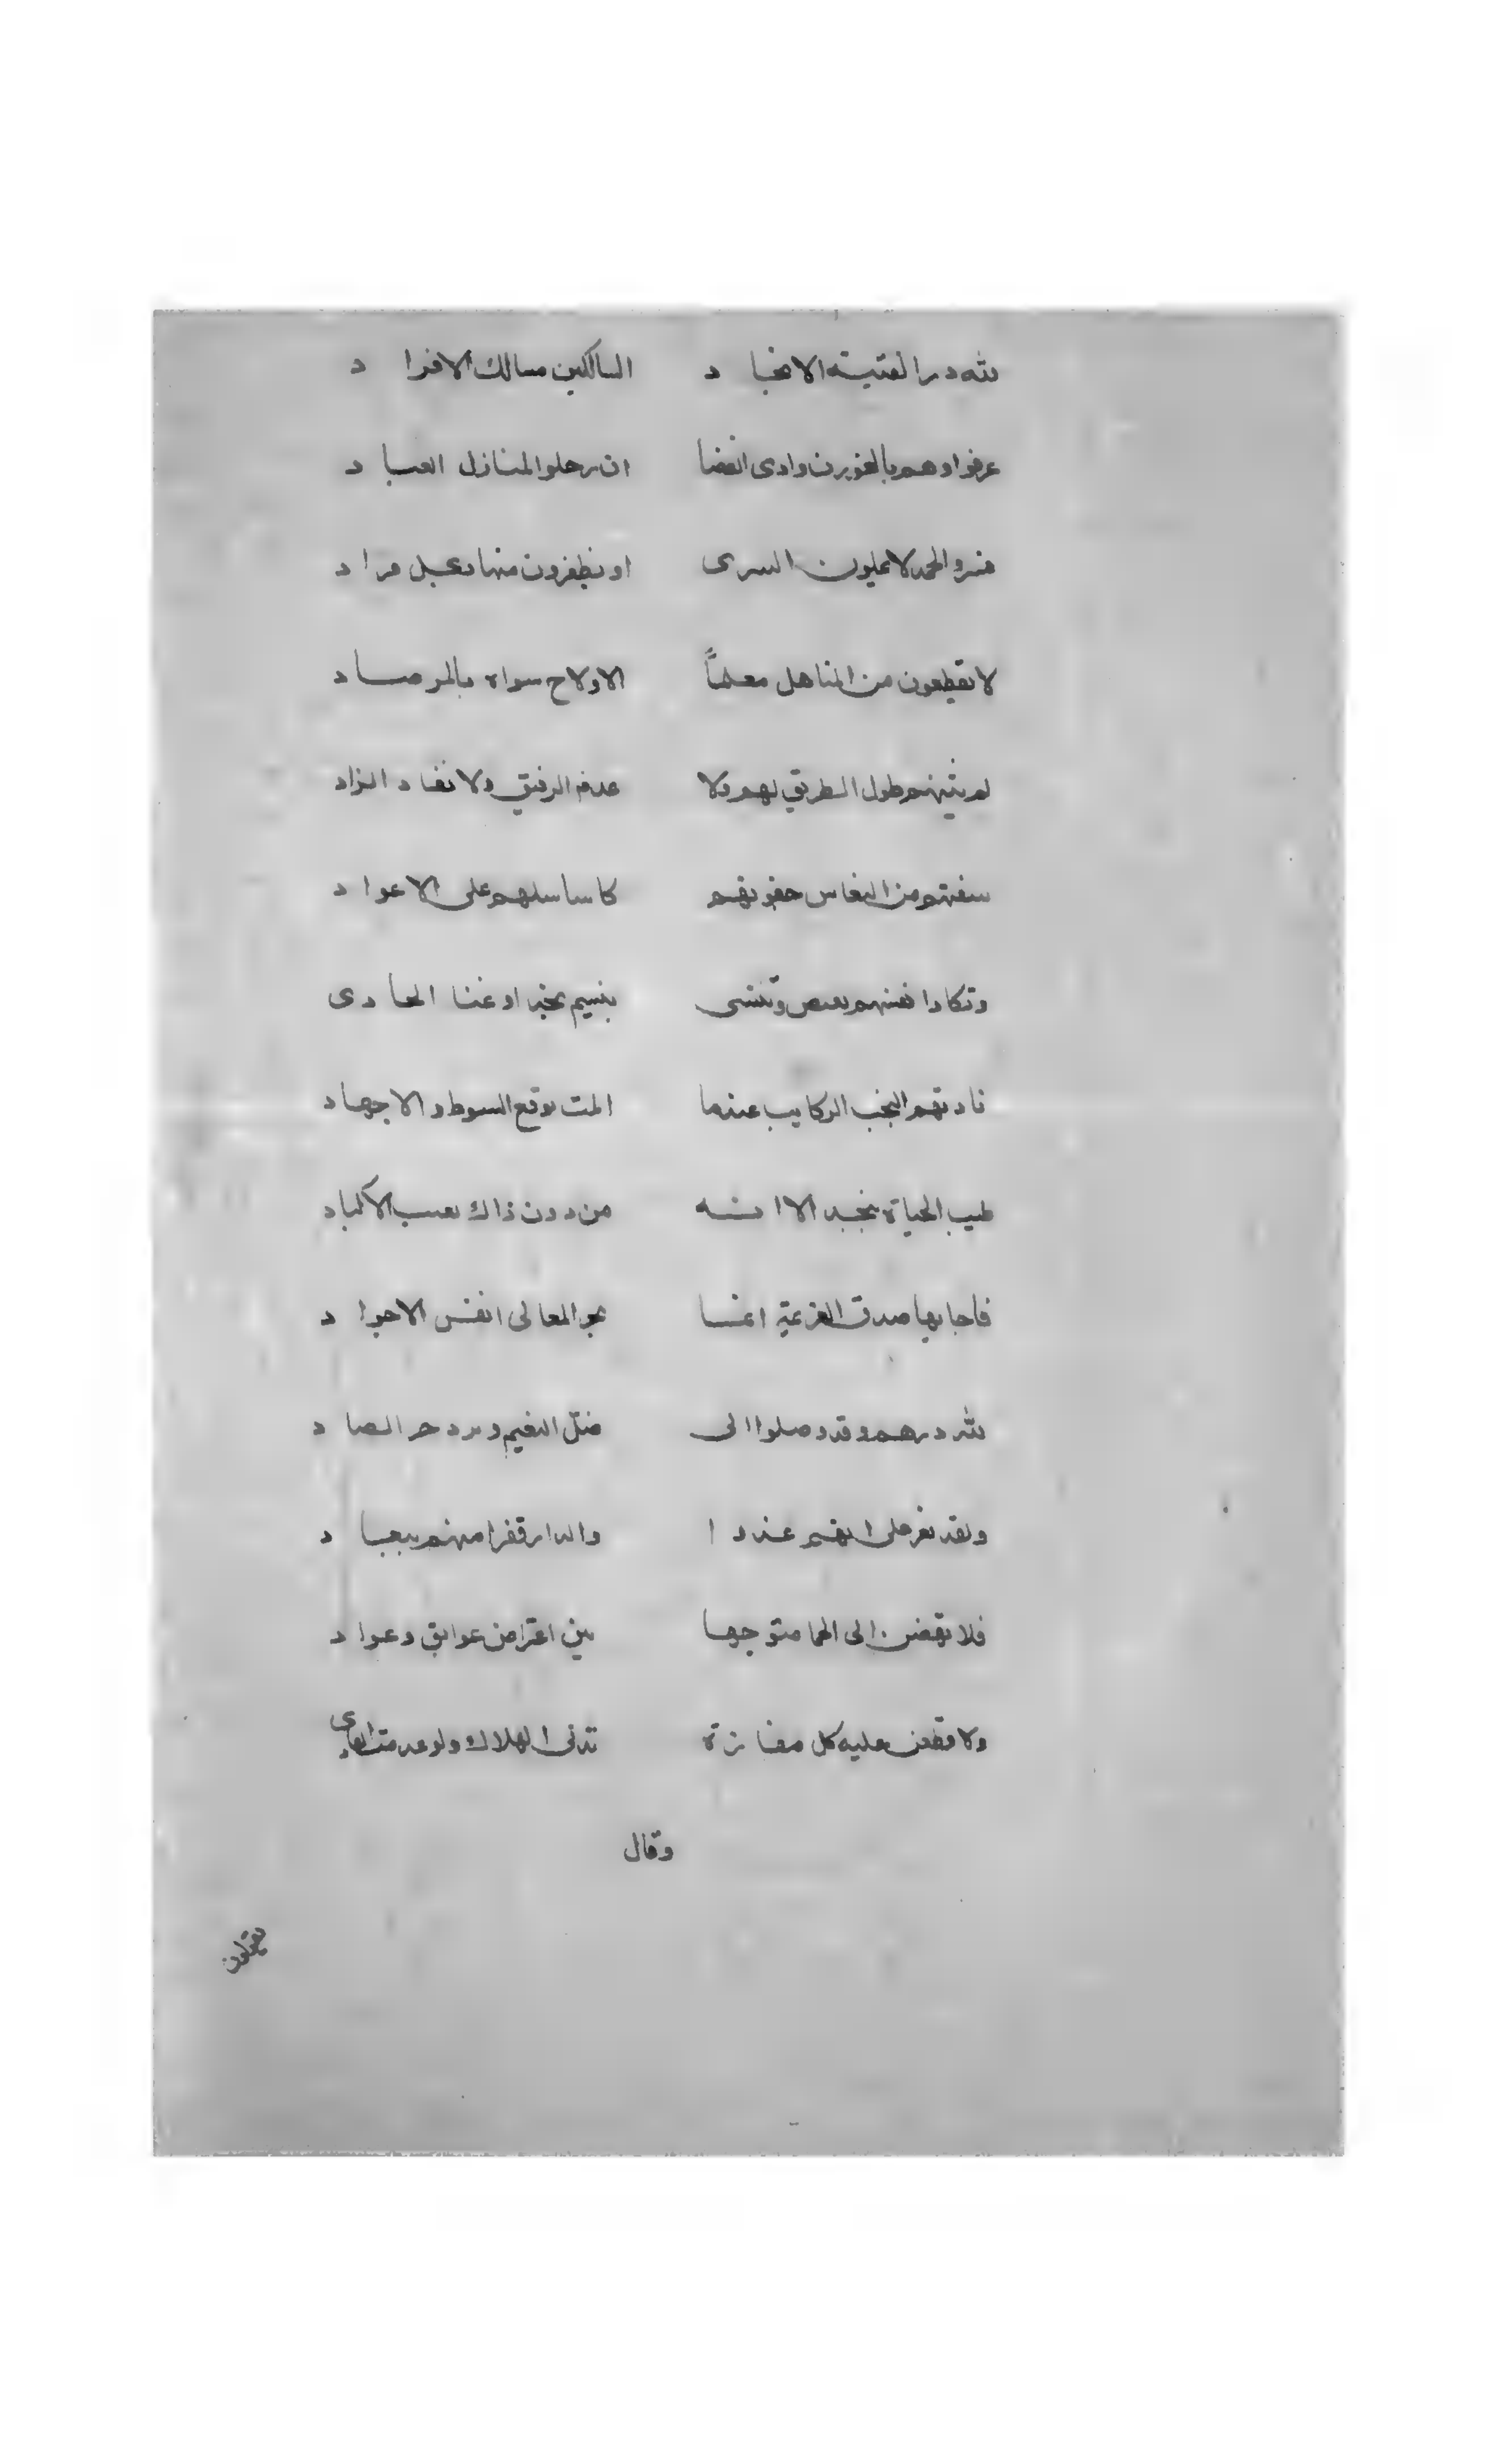 لله در الفتية الانجاد السالكين مسالك الافراد
عرفوا وهم بالغويرن وادى الغضا ان رحلوا المنازل العباد
لا يملون السرى او يظفرون منها مراد
لا يقطعون من المناهل معلماً الا ولاح سواه بالمرصاد
لم يثنهم طول الطريق لهم ولا عدم الرفيق ولا نفاد الزاد
من النعاس كاسا على الاعواد
وتكاد انفسهم بنسيم نجد او غنا الحادى
نادتهم النجب الركايب عندما المت بوقع السوط والاجهاد
طيب الحياة بنجد الا انه من دون ذاك الاكباد
فاجابها صدق العزيمة انما نحو المعالى انفس الاجواد
لله درهم وقد وصلوا الى ظل النعيم وبرد حر الصاد
ولقد يعز على غدا والدار قفرا منهم ببعاد
فلانهضن الى الحما متوجها بين اعتراض عوايق وعواد
ولاقطعن عليه كل مفازة تدنى الهلاك ولو
وقال